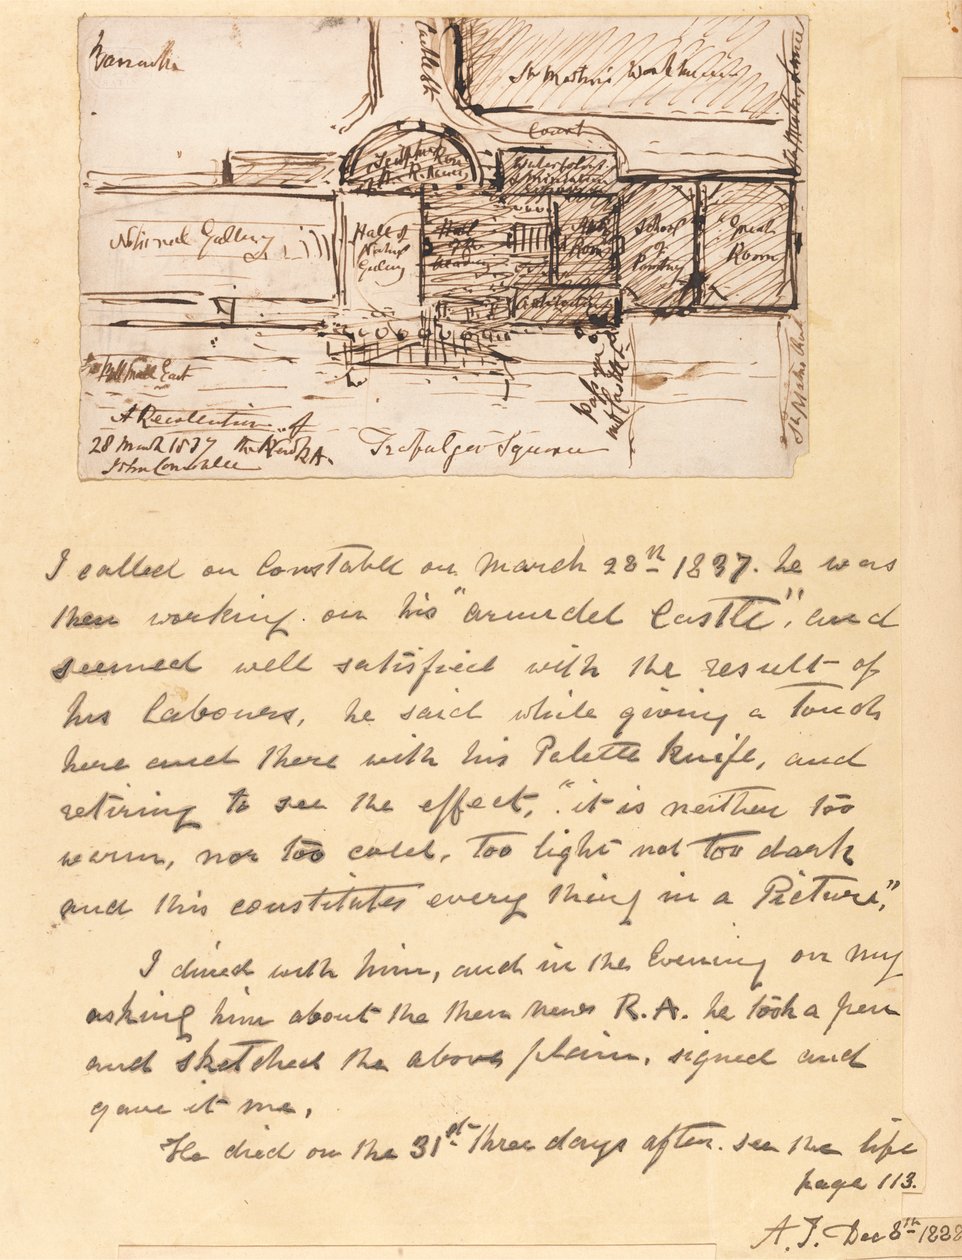 Barracks
Castle St
St Martins Workhouse
Court
Sculpture Room
R. Academy
National Gallery
Hall of
National
Gallery
Hall
of the
Academy
Room
School
of
Painting
Great
Room
Architecture
To Pall Mall East
Pass
Castle St
A Recollection of
28 March 1837 the New R A.
John Constable
Trafalgar Square
I called on Constable on March 28th 1837. he was
then working on his "arundel Castle", and
seemed well satisfied with the result of
his labours, he said while giving a touch
here and there with his Palette knife, and
retiring to see the effect, "it is neither too
warm, nor too cold, too light not too dark
and this constitutes every thing in a Picture,"
I dined with him, and in the Evening on my
asking him about the then new R.A. he took a pen
and sketched the above plain, signed and
gave it me,
He died on the 31st three days after. see the life
page 113.
A. T. Dec 8th 1888